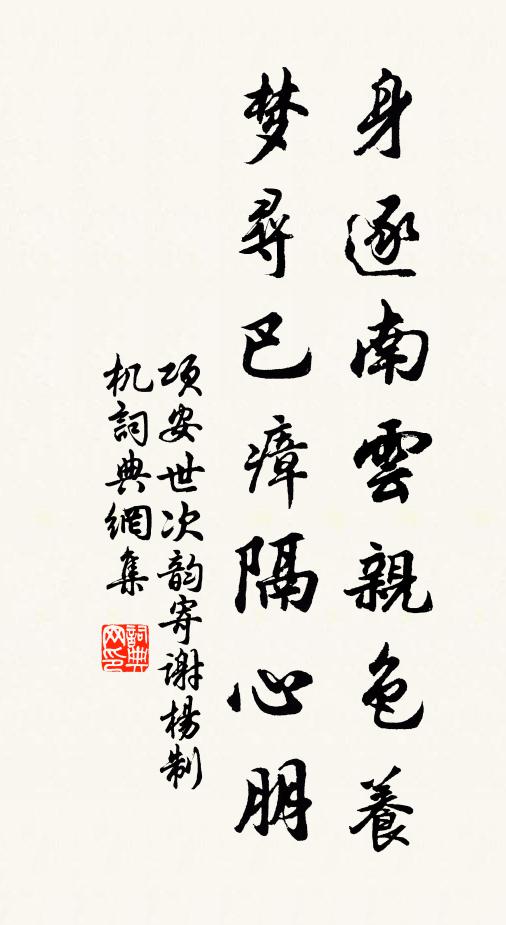 身逐南雲親色養
梦尋巴瘴隔心朋
项安世次韵寄谢楊制
机詞典網集
詞典
网印